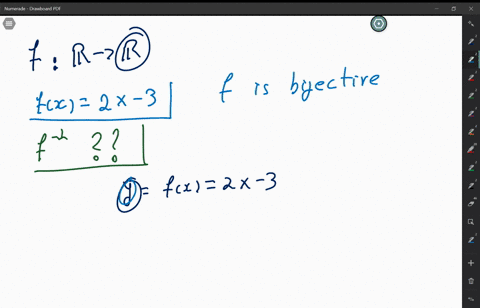 Numerade - Drawboard PDF
f : ℝ → ℝ
f(x) = 2x - 3
f is bijective
f⁻¹ ??
y = f(x) = 2x - 3